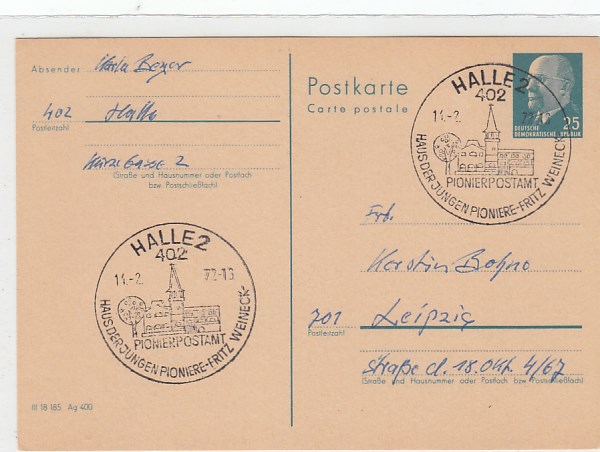 Absender Karla Beyer
402 Halle
Postleitzahl
Kurze Gasse 2
(Straße und Hausnummer oder Postfach
bzw. Postschließfach)
HALLE 2
402
14.-2. 72-13
PIONIERPOSTAMT
HAUS DER JUNGEN PIONIERE-FRITZ WEINECK
III 18 185 Ag 400
Postkarte
Carte postale
DEUTSCHE
DEMOKRATISCHE REPUBLIK
25
HALLE 2
402
14.-2. 72
PIONIERPOSTAMT
HAUS DER JUNGEN PIONIERE-FRITZ WEINECK
Frl.
Kerstin
701 Leipzig
Postleitzahl
Straße d. 18. Okt. 4/67
(Straße und Hausnummer oder Postfach bzw. Postschließfach)